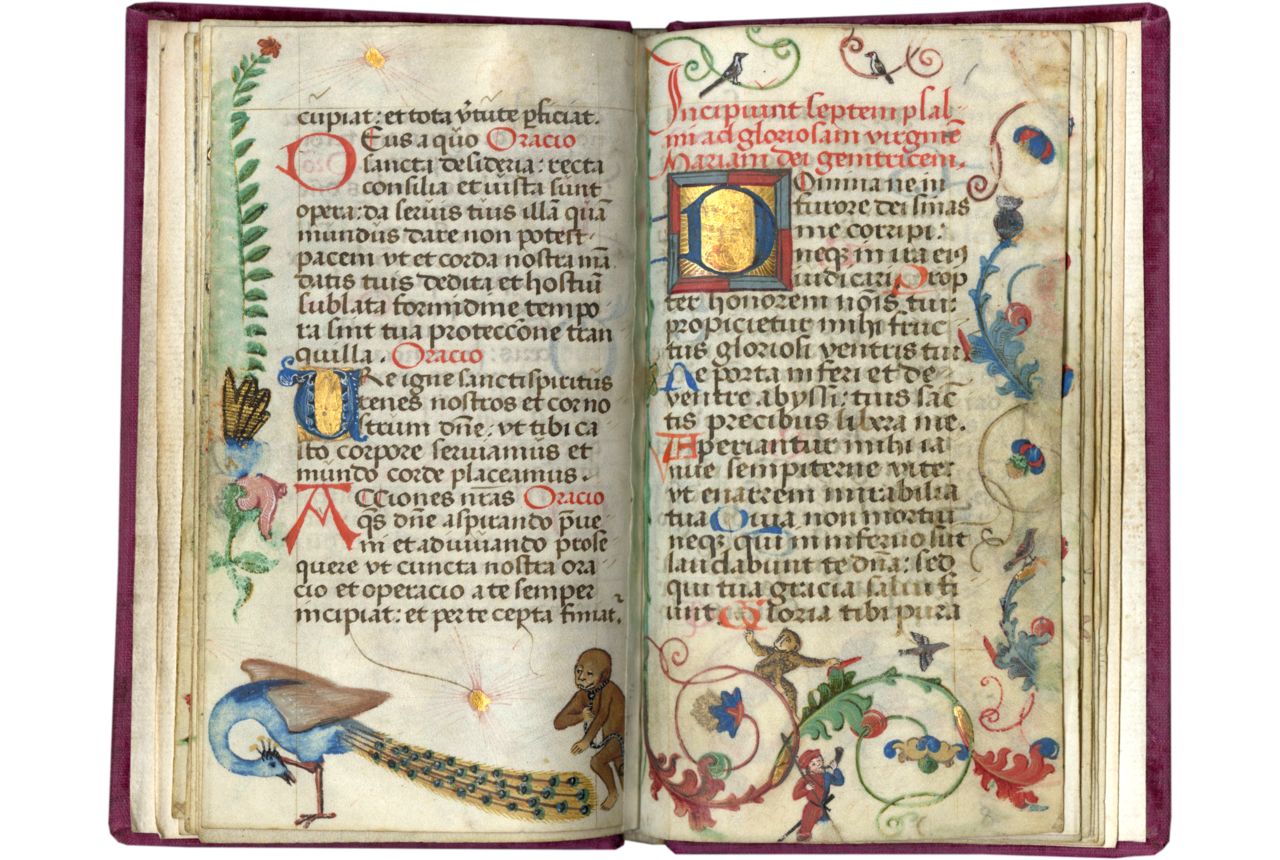 cupiat: et tota v̄tute ꝑficiat.
DEus a quo Oracio
sancta desideria: recta
consilia et iusta sunt
opera: da seruis tuis illā quā
mundus dare non potest
pacem vt et corda nostra mā
datis tuis dedita et hostiū
sublata formidine tempo
ra sint tua proteccōne tran
quilla. Oracio
URe igne sancti spiritus
renes nostros et cor no
strum dn̄e: vt tibi ca
sto corpore seruiamus et
mundo corde placeamus.
ACciones nr̄as Oracio
qs̄ dn̄e aspirando p̄ue
ni et adiuuando prose
quere vt cuncta nostra ora
cio et operacio a te semper
incipiat: et per te cepta finiat̉.
Incipiunt septem psal
mi ad gloriosam virginē
Mariam dei genitricem.
DOmina ne in
furore dei sinas
me corripi:
neqꝫ in ira eiꝰ
iudicari Prop
ter honorem nōis tui:
propicietur mihi fruc
tus gloriosi ventris tui
Ae porta inferi et de
ventre abyssi: tuis sāc
tis precibus libera me.
Aperiantur mihi ia
nue sempiterne vite:
vt enarrem mirabilia
tua Quia non mortui
neqꝫ qui in inferno sūt
laudabunt te dn̄a: sed
qui tua gracia salui fi
unt. Gloria tibi pura